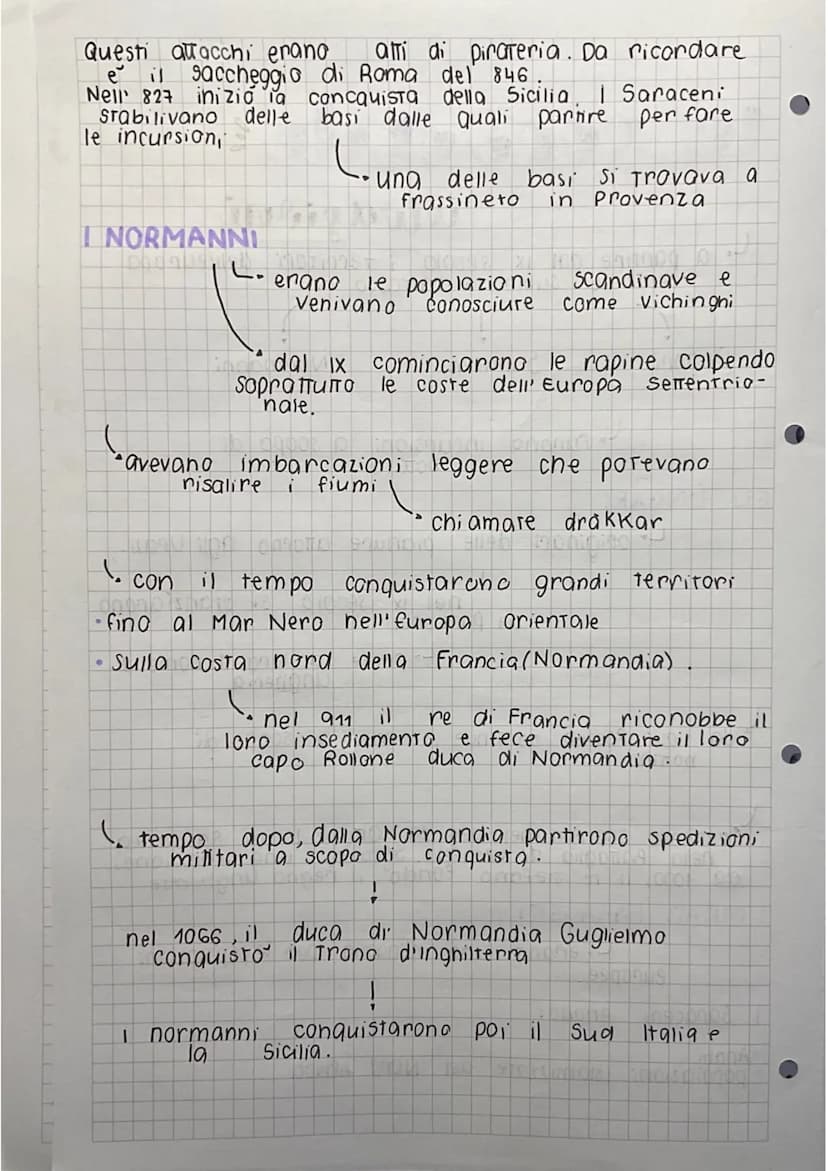 Questi attacchi erano atti di pirateria. Da ricordare
è il saccheggio di Roma del 846.
Nell' 827 iniziò la concquista della Sicilia. I Saraceni
stabilivano delle basi dalle quali partire per fare
le incursioni
una delle basi si trovava a
frassineto in Provenza
I NORMANNI
erano le popolazioni scandinave e
venivano conosciute come vichinghi
dal IX cominciarono le rapine colpendo
soprattutto le coste dell'Europa settentrio-
nale.
avevano imbarcazioni leggere che potevano
risalire i fiumi
chiamate drakkar
con il tempo conquistarono grandi territori
• fino al Mar Nero nell'Europa orientale
• sulla costa nord della Francia (Normandia).
nel 911 il re di Francia riconobbe il
loro insediamento e fece diventare il loro
capo Rollone duca di Normandia.
tempo dopo, dalla Normandia partirono spedizioni
militari a scopo di conquista.
nel 1066, il duca di Normandia Guglielmo
conquistò il Trono d'inghilterra
i normanni conquistarono poi il Sud Italia e
la Sicilia.